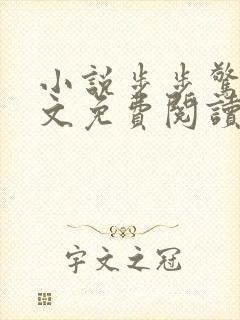 小説步步驚
文免費閱讀
宇文之冠